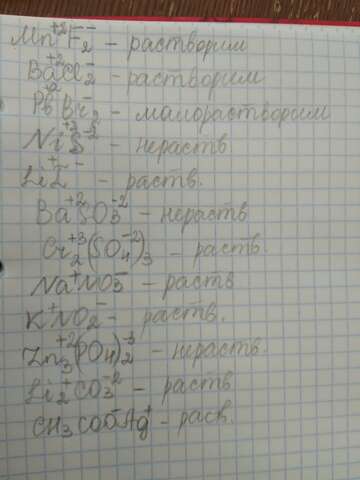 Mn⁺²F₂⁻ – растворим
Ba⁺²Cl₂⁻ – растворим
Pb⁺²Br₂⁻ – малорастворим
Ni⁺²S⁻² – нераств
Li⁺I⁻ – раств.
Ba⁺²SO₃⁻² – нераств
Cr₂⁺³(SO₄⁻²)₃ – раств.
Na⁺NO₃⁻ – раств
K⁺NO₂⁻ – раств.
Zn₃⁺²(PO₄)₂⁻³ – нераств.
Li₂⁺CO₃⁻² – раств
CH₃COO⁻Ag⁺ – расв.